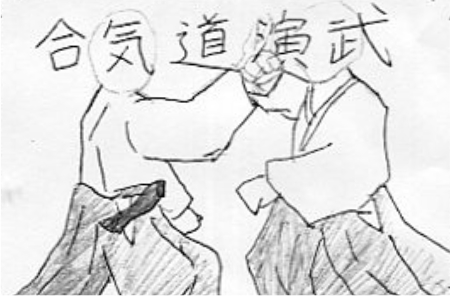 合気道演武